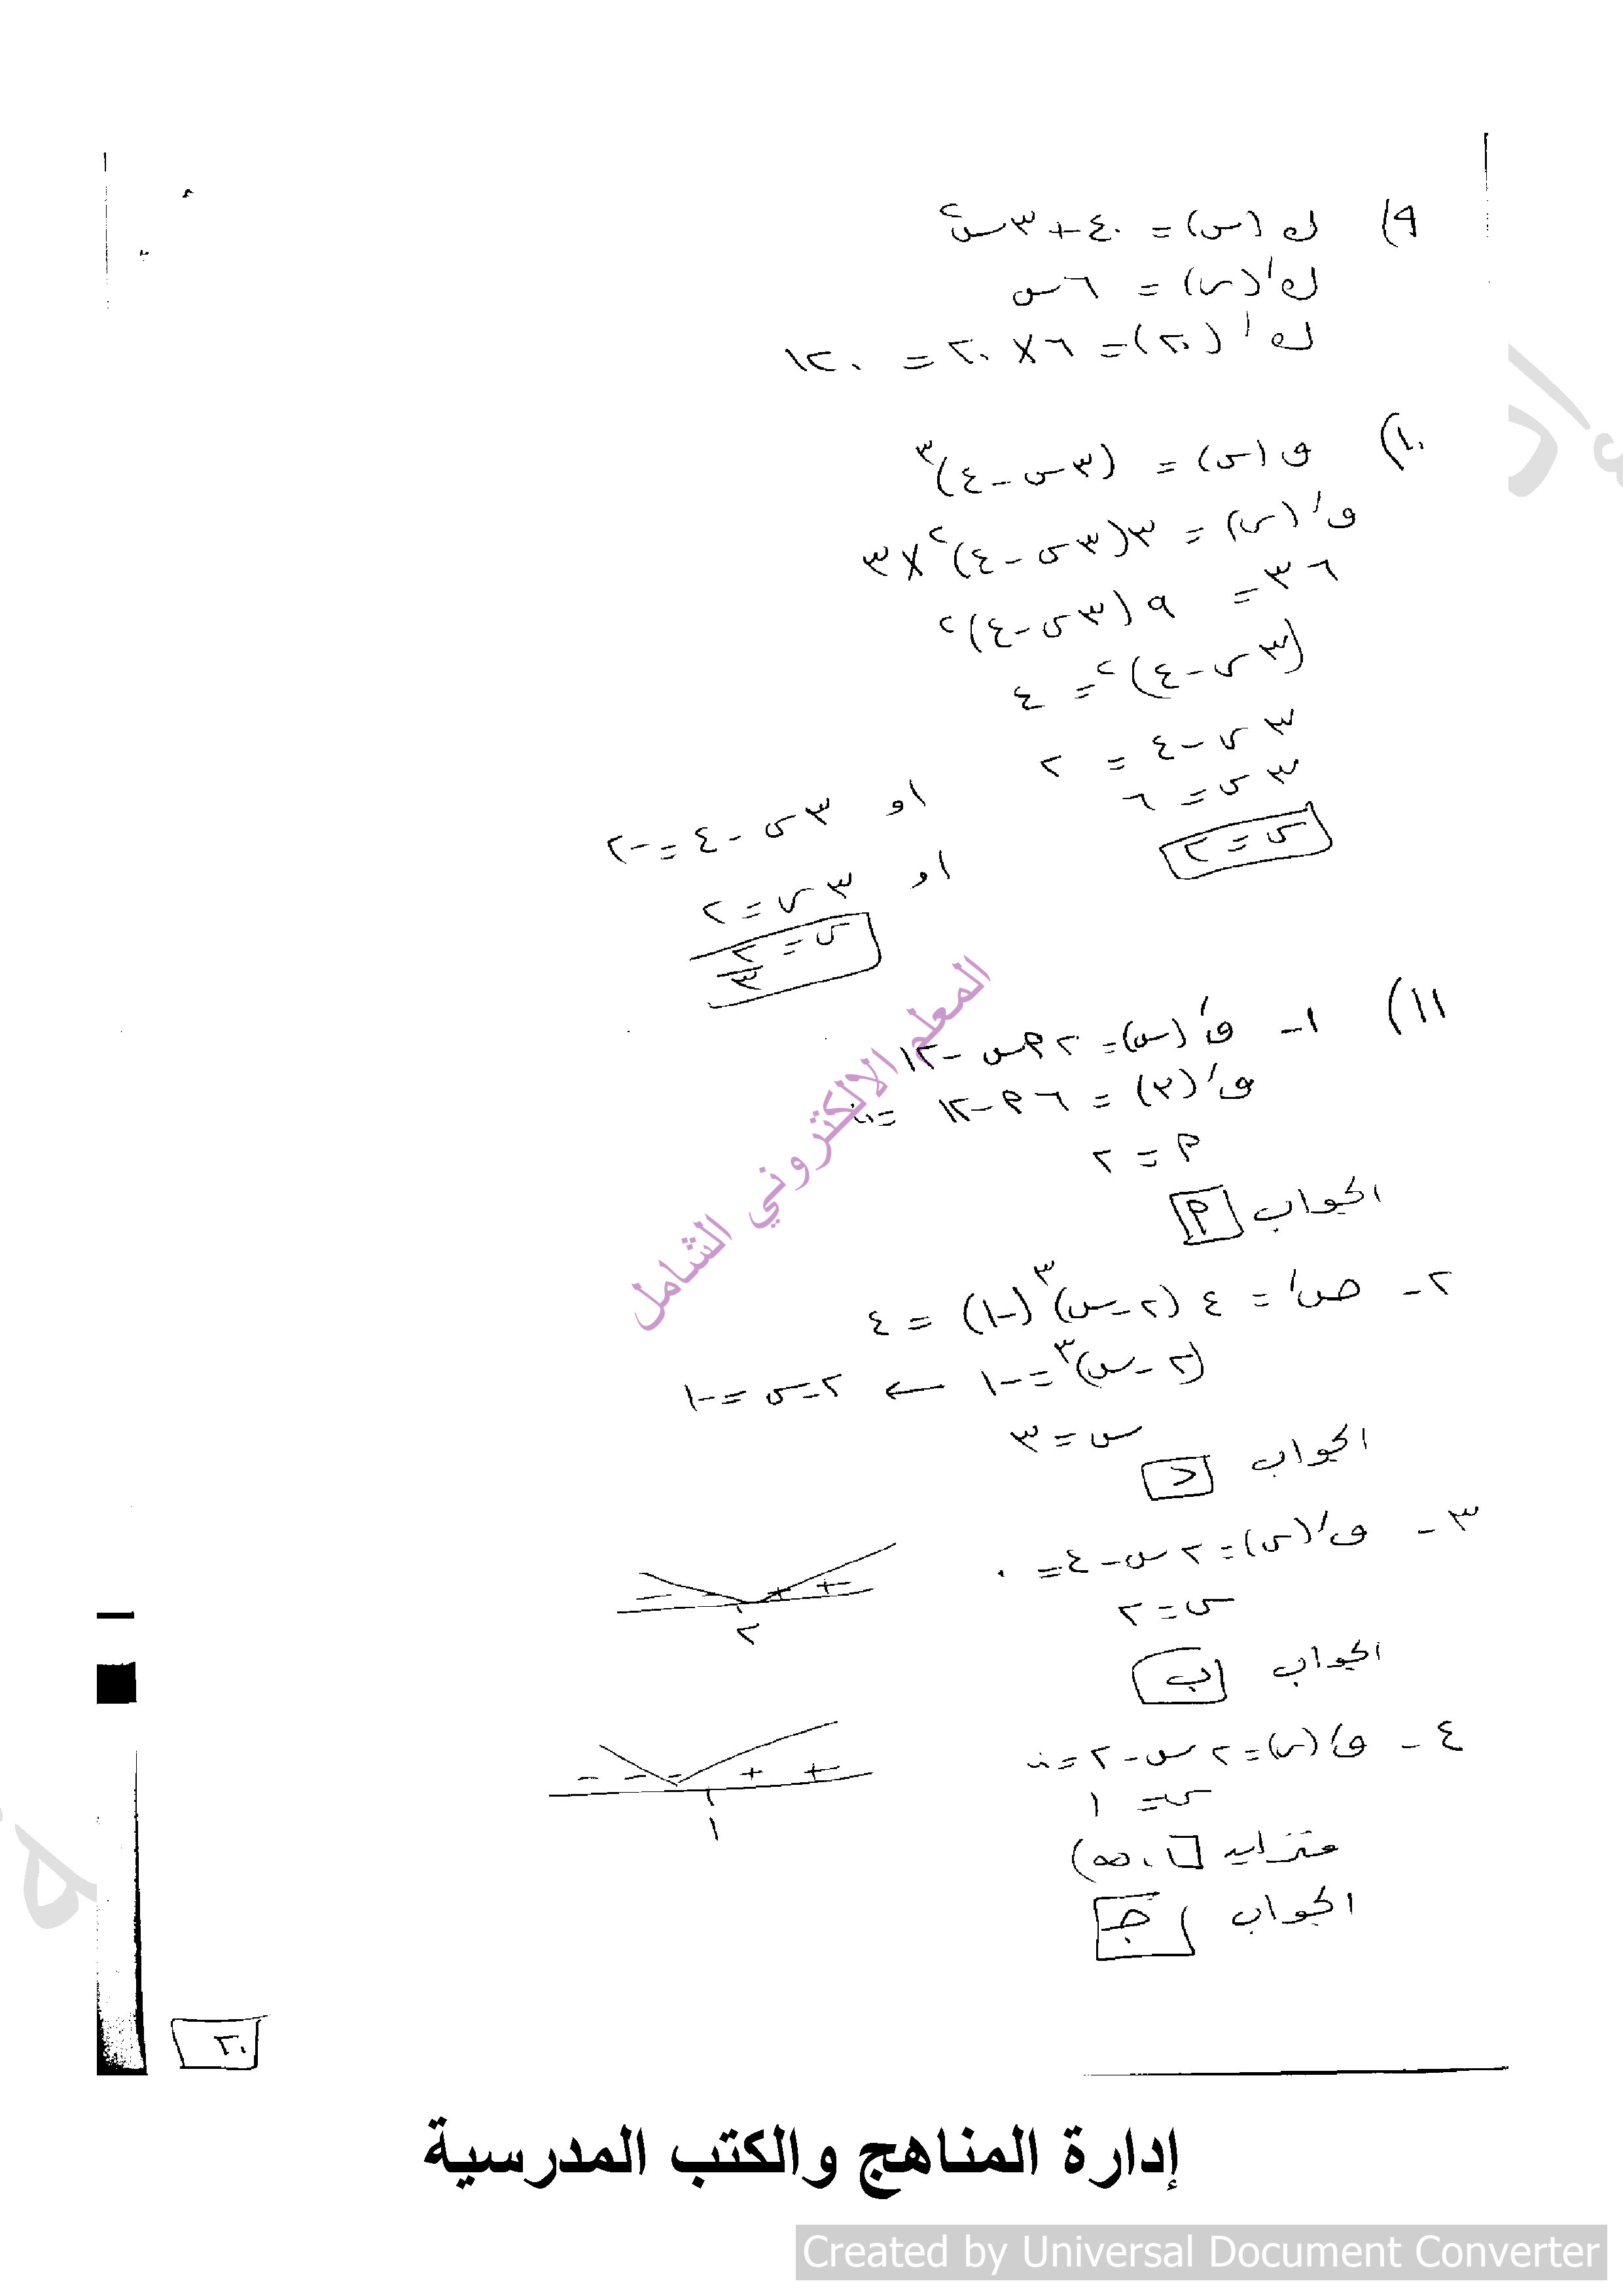 ٩) ك (س) = ٤٠ + ٣س٢
ك/(س) = ٦س
ك/(٢٠) = ٦ × ٢٠ = ١٢٠
١٠) ق (س) = (٣س - ٤)٣
ق/(س) = ٣(٣س - ٤)٢ × ٣
٣٦ = ٩(٣س - ٤)٢
(٣س - ٤)٢ = ٤
٣س - ٤ = ٢ او ٣س - ٤ = -٢
٣س = ٦ او ٣س = ٢
س = ٢
س = ٢/٣
١١) ١- ق/(س) = ٢أس - ١٢
ق/(٣) = ٦أ - ١٢ = ٠
أ = ٢
الجواب أ
٢- ص/ = ٤(٢ - س)٣(-١) = ٤
(٢ - س)٣ = -١ ← ٢ - س = -١
س = ٣
الجواب د
٣- ق/(س) = ٢س - ٤ = ٠
س = ٢
- - + +
٢
الجواب ب
٤- ق/(س) = ٢س - ٢ = ٠
- - - + +
س = ١
١
متزايد [١، ∞)
الجواب جـ
المعلم الالكتروني الشامل
٢٠
إدارة المناهج والكتب المدرسية
Created by Universal Document Converter